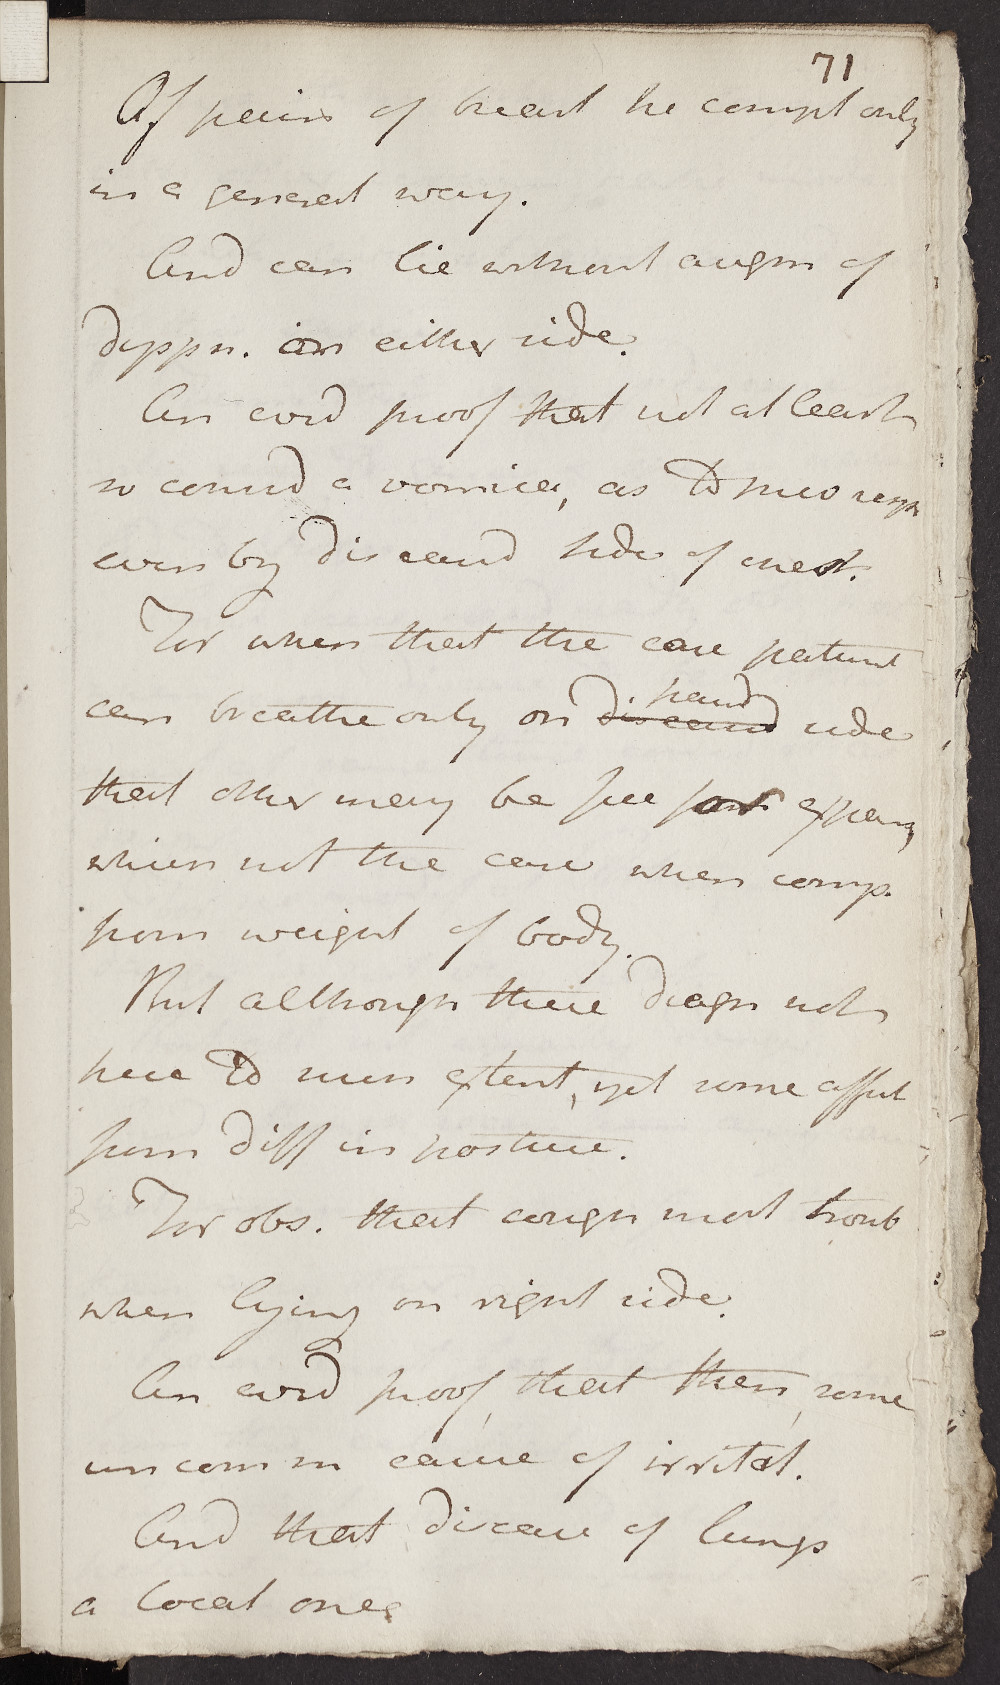 71
Of pain of breast he compt only
in a general way.
And can lie without augm of
dyspn. on either side.
An evid proof that not at least
so consid a vomica, as to prev resp
even by diseasd side of chest.
For when that the case patient
can breathe only on diseasd hand side
that other may be free for expans,
which not the case when comp.
from weight of body.
But although there diagn not
here to much extent, yet some assist
from diff in posture.
For obs. that cough most troub
when lying on right side.
An evid proof, that then, some
uncomm cause of irritat.
And that disease of lungs
a local one